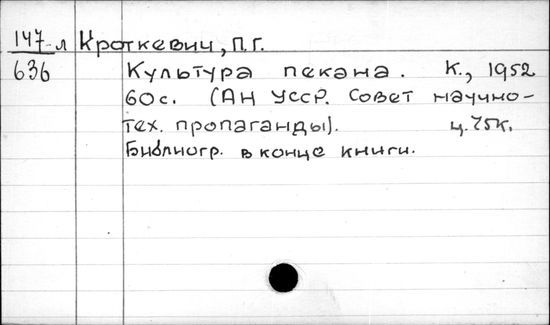 147-л Кроткевич, П.Г.
636 Культура пекана. К., 1952
60с. (АН УССР. Совет научно-
тех. пропаганды). ц. 75к.
Библиогр. в конце книги.